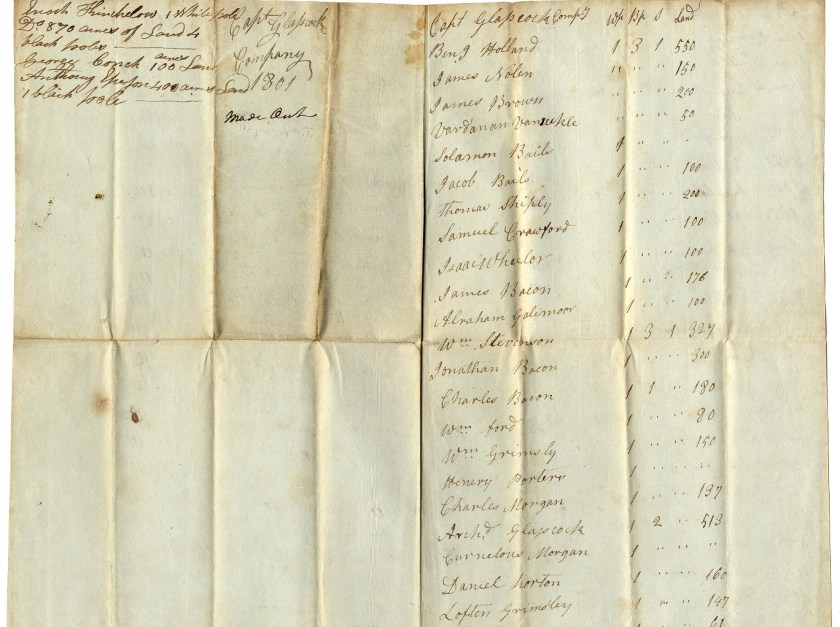 Enoch Shinchelow 1 White pole
Do 870 acres of Land 4
black poles
George Couch 100 acres Land
Anthony Epeson 400 acres Land
1 black pole
Capt Glascock
Company
1801
Made Out
Capt Glascock Comp'y Wp Bp S Land
Benj Holland 1 3 1 550
James Nolen " " " 150
James Brown " " " 200
Vardanan Vanuckle " " " 50
Solamon Bails 1 " " "
Jacob Bails 1 " " 100
Thomas Shiply 1 " " 200
Samuel Crawford 1 " " 100
Isaac Wheelor 1 " " 100
James Bacon 1 " " 176
Abraham Galimoor 1 " " 100
Wm Stevenson 1 3 1 327
Jonathan Bacon 1 " " 300
Charles Bacon 1 1 " 180
Wm ford 1 " " 80
Wm Grimsly 1 " " 150
Henery Porters 1 " " "
Charles Morgan 1 " " 137
Archd Glascock 1 2 " 513
Curnelous Morgan 1 " " "
Daniel horton 1 " " 160
Loften Grimsley 1 " " 147